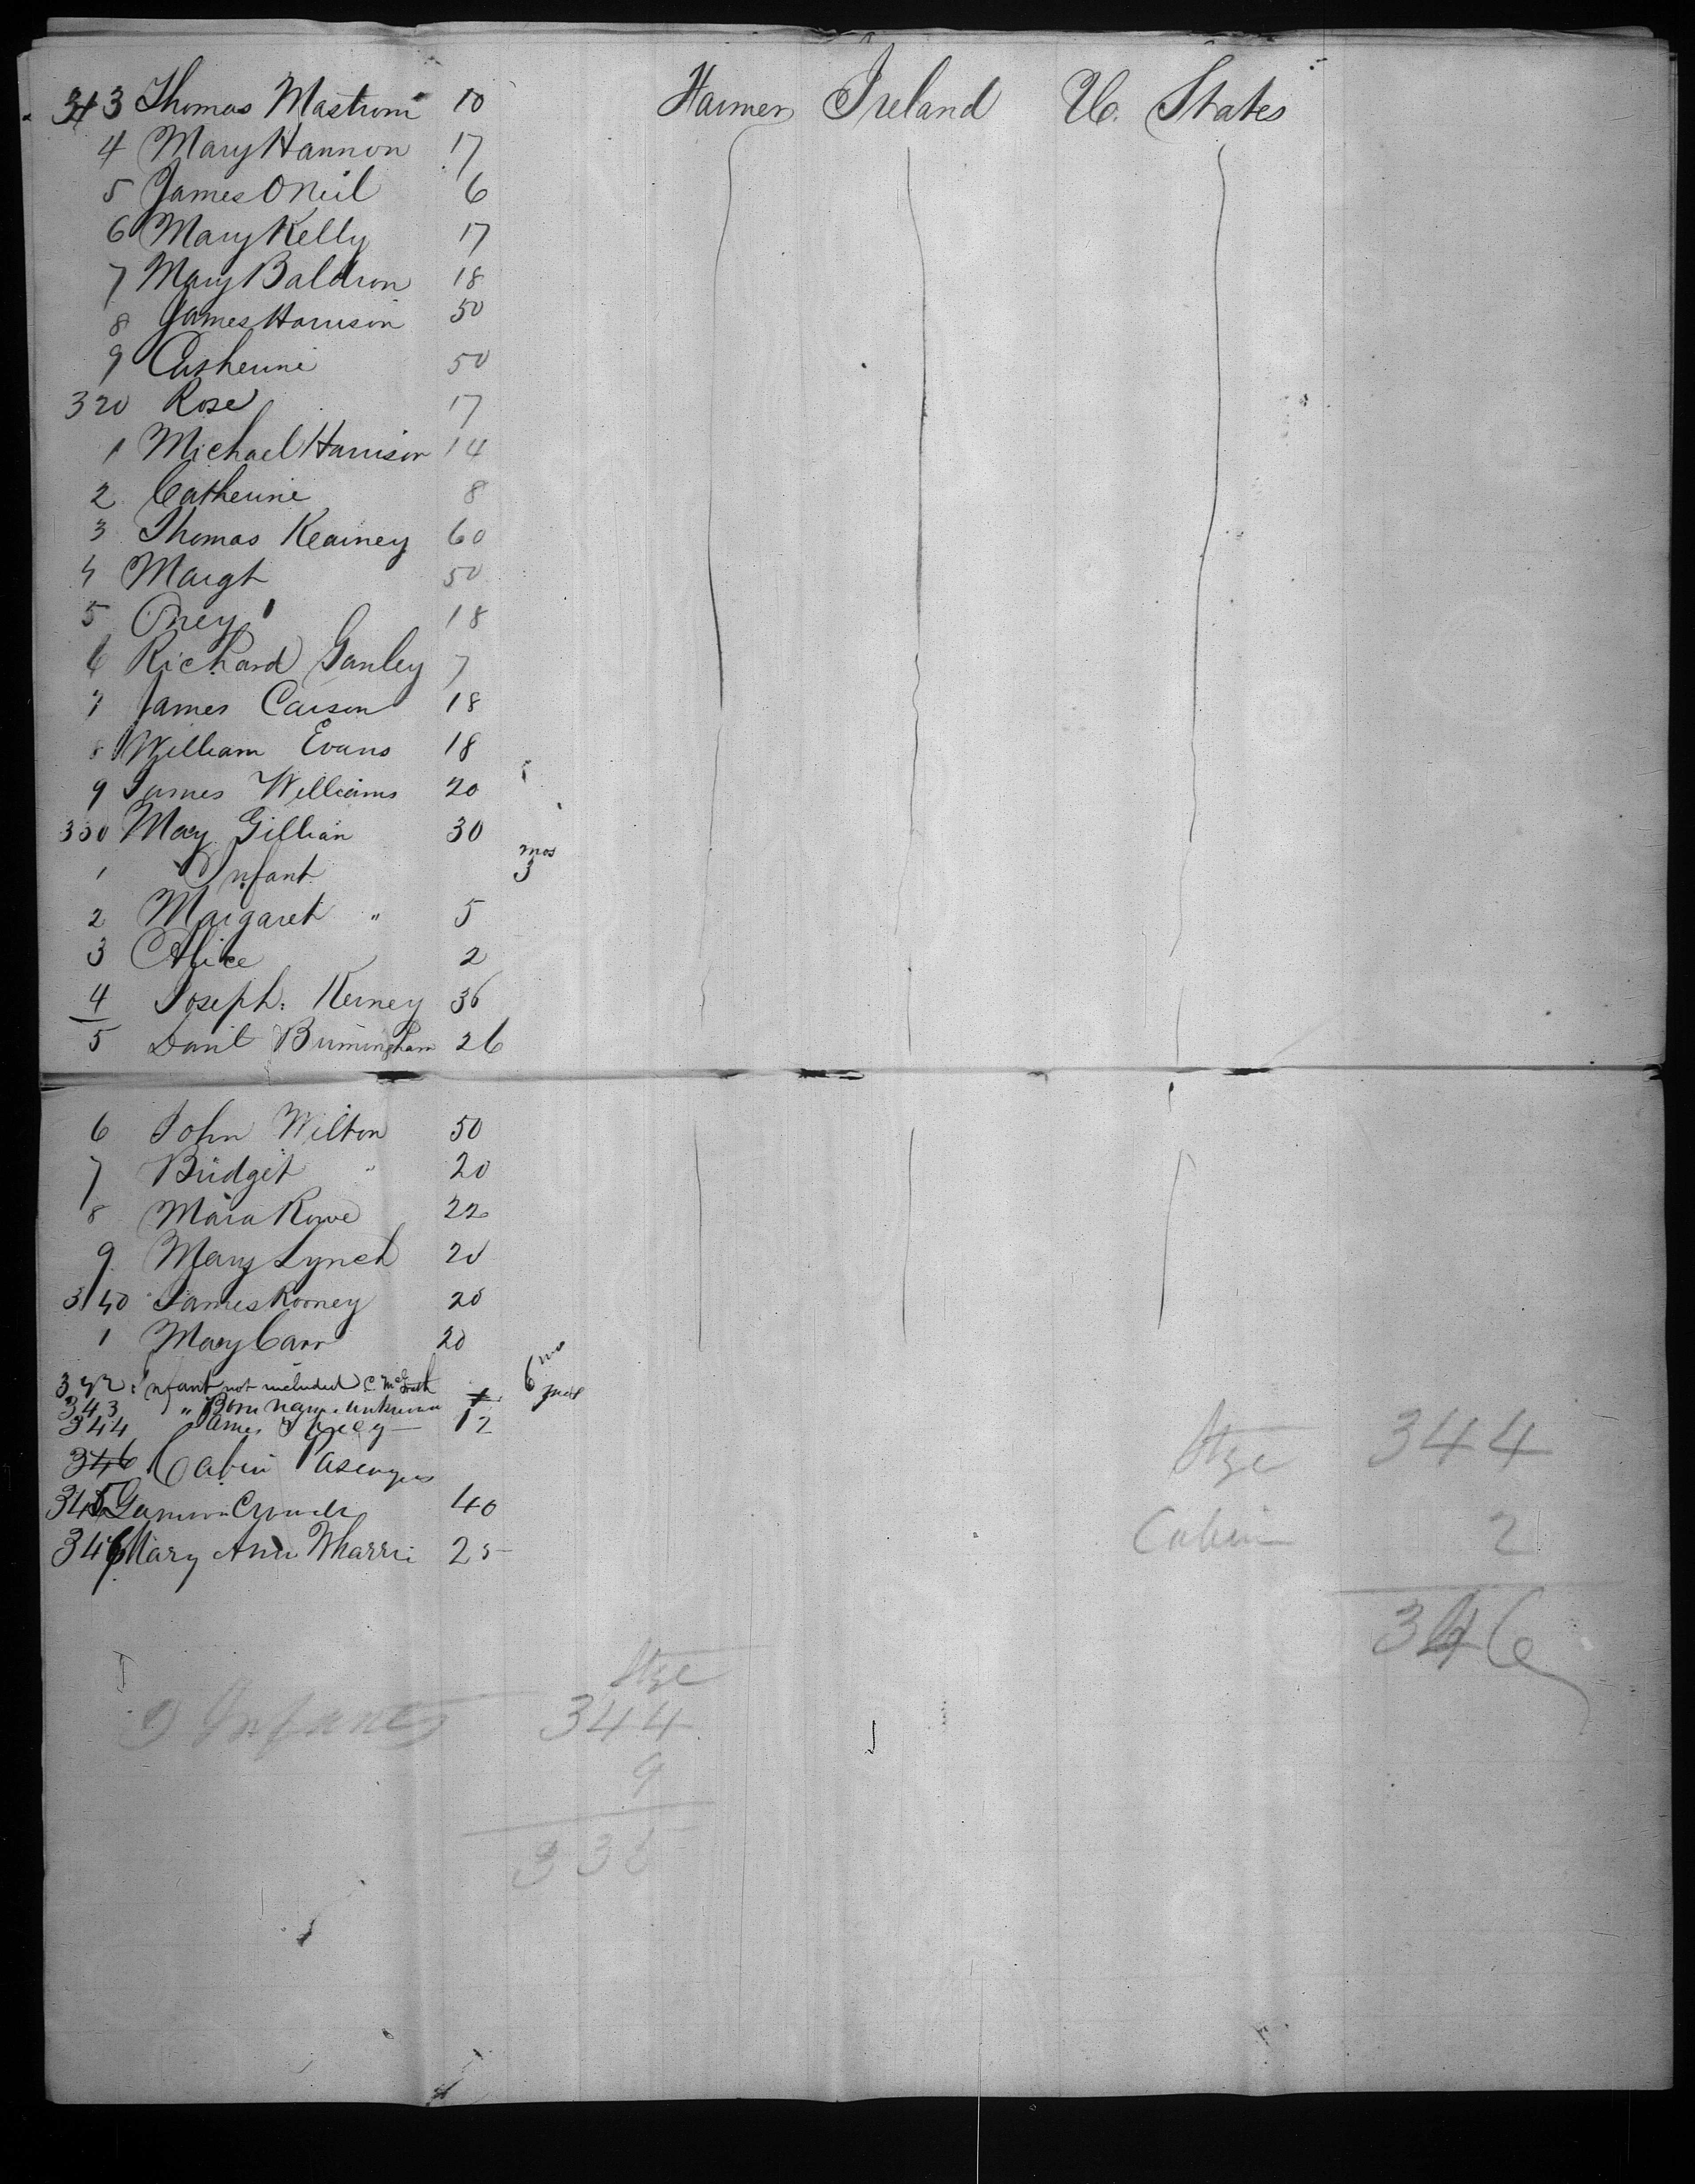 313 Thomas Mastrom 10 Farmer Ireland U. States
4 Mary Hannon 17
5 James ONeil 6
6 Mary Kelly 17
7 Mary Baldron 18
8 James Harrison 50
9 Catherine 50
320 Rose 17
1 Michael Harrison 14
2 Catherine 8
3 Thomas Kearney 60
4 Margt 50
5 18
6 Richard Ganley 7
7 James Carson 18
8 William Evans 18
9 James Williams 20
330 Mary Gillian 30
1 Infant 3 mos
2 Margaret " 5
3 Alice 2
4 Joseph Kerney 36
5 Danl Birmingham 26
6 John Wilton 50
7 Bridget " 20
8 Maria Rowe 22
9 Mary Lynch 20
340 James Rooney 20
1 Mary Carr 20
342 Infant not included C. McGrath 6 mos
343 " Born name unknown
344 James 12
346 Cabin Pasengers
345 40
346 Mary Ann 25
Stge 344
Cabin 2
346
9 Infants
Stge
344
9
335